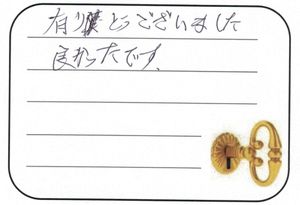 有り難とうございました
良かったです。